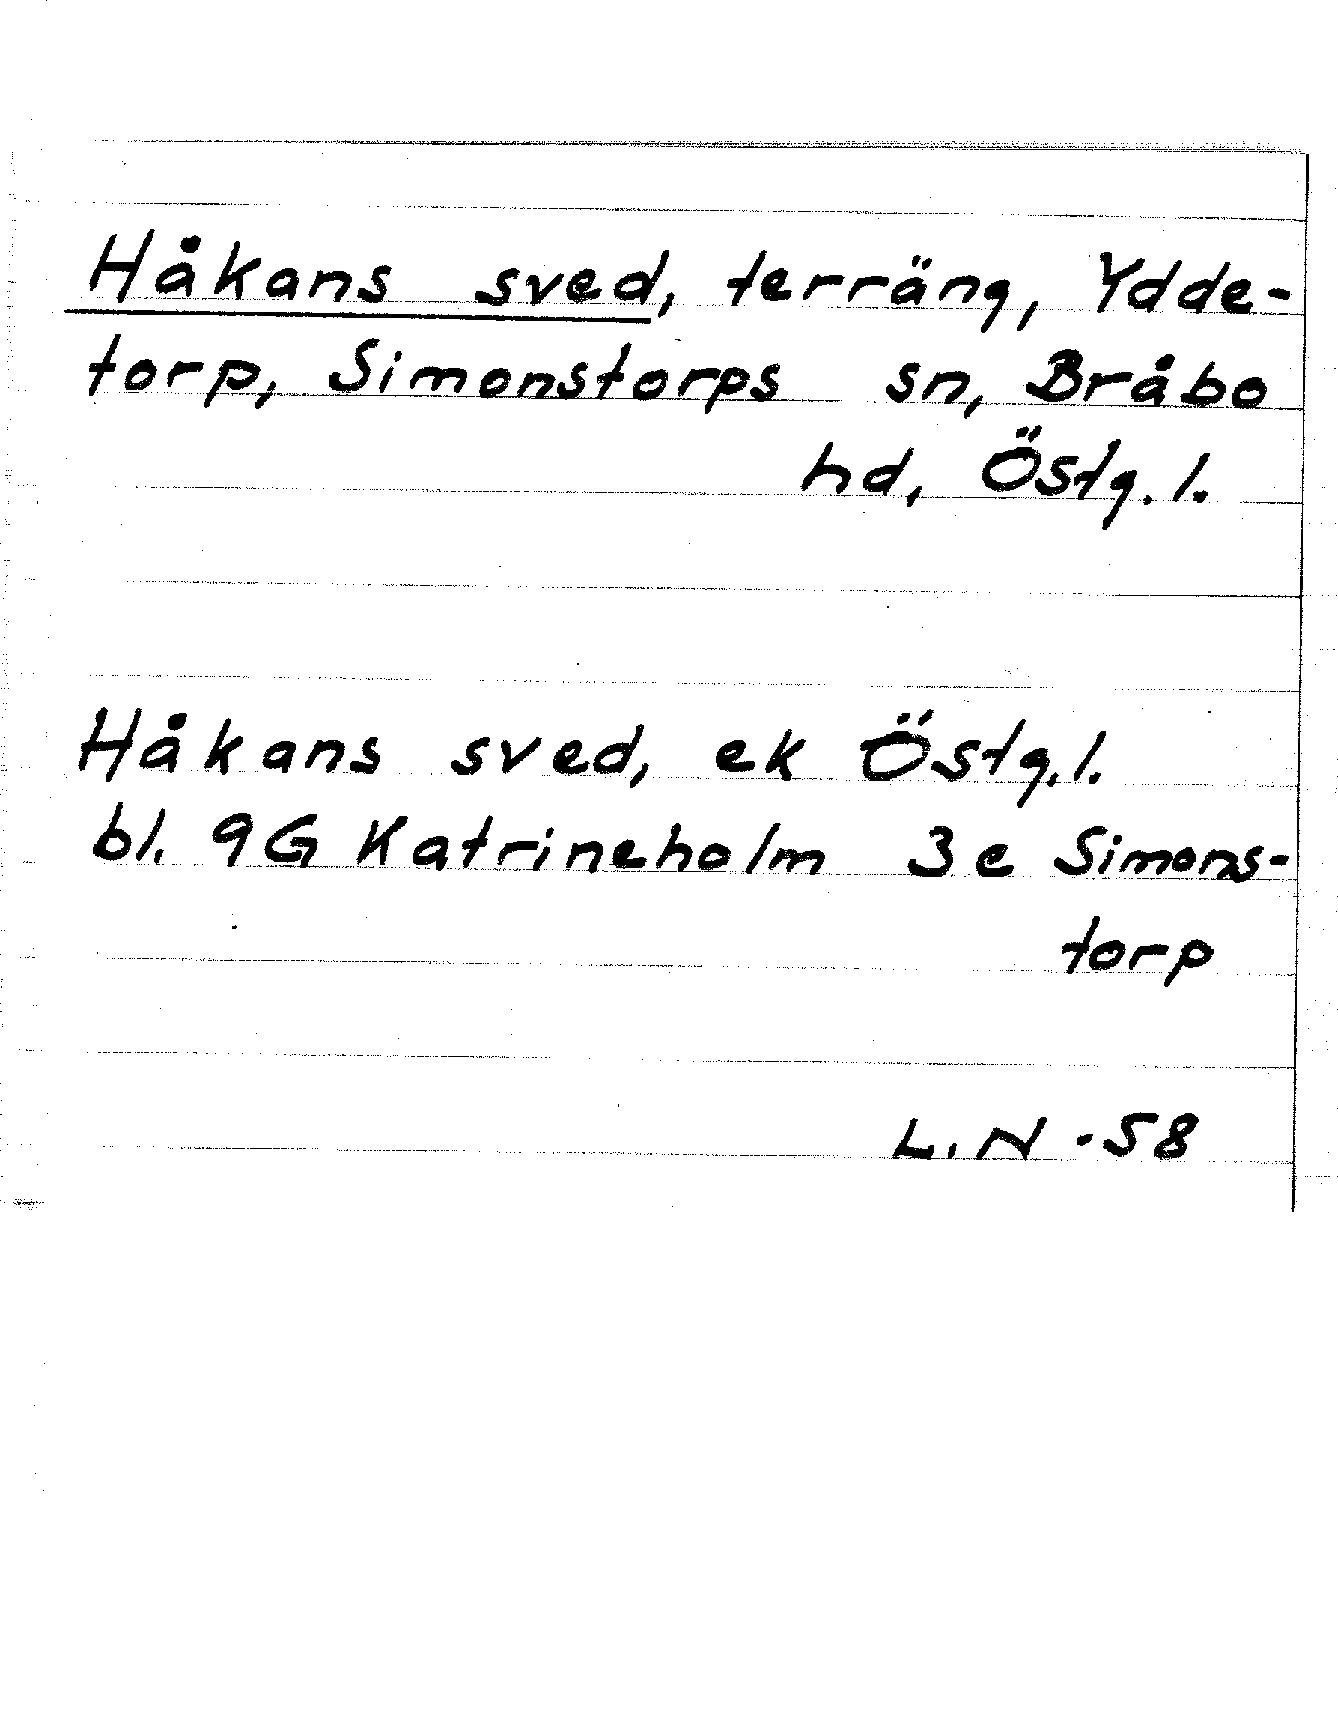 Håkans sved, terräng, Ydde-
torp, Simonstorps sn, Bråbo
hd, Östg. l.
Håkans sved, ek Östg. l.
bl. 9G Katrineholm 3e Simons-
torp
L.N -58